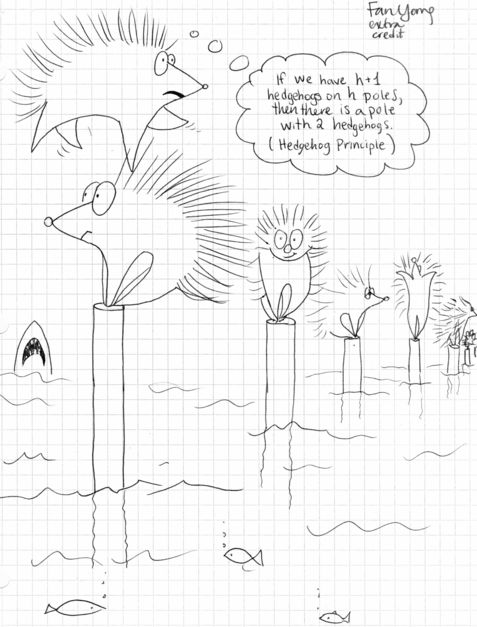 Fan Yong
extra
credit
If we have h+1
hedgehogs on h poles,
then there is a pole
with 2 hedgehogs.
(Hedgehog Principle)